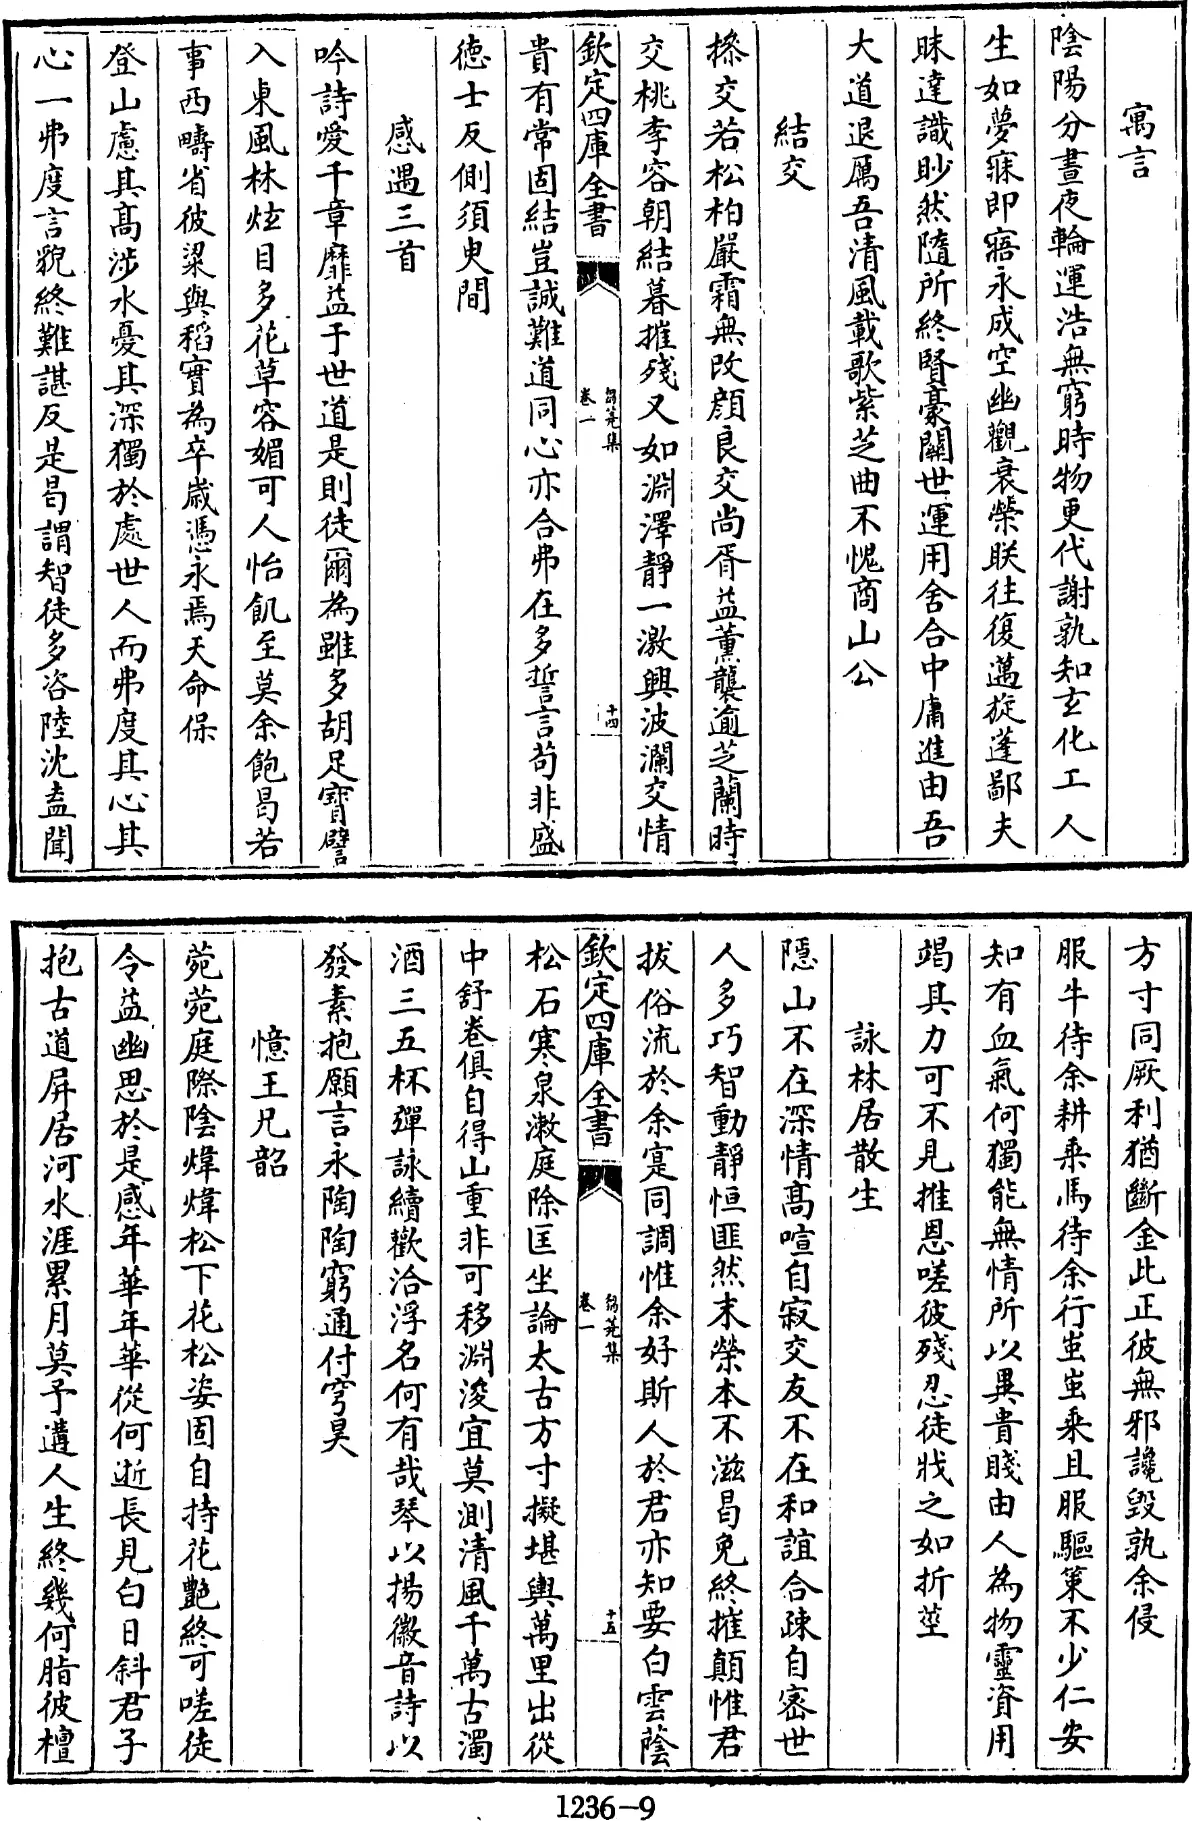 寓言
陰陽分晝夜輪運浩無窮時物更代謝孰知玄化工人
生如夢寐即寤永成空幽觀衰榮联往復邁旋蓬鄙夫
昧達識眇然隨所終賢豪關世運用舍合中庸進由吾
大道退厲吾清風載歌紫芝曲不愧商山公
結交
搽交若松柏嚴霜無改顔良交尚胥益薰襲逾芝蘭時
交桃李容朝結暮摧殘又如淵澤靜一激興波瀾交情
欽定四庫全書
芻蕘集
卷一
十四
貴有常固結豈誠難道同心亦合弗在多誓言苟非盛
徳士反側須臾間
感遇三首
吟詩愛千章靡益于世道是則徒爾為雖多胡足寳譬
入東風林炫目多花草容媚可人怡飢至莫余飽曷若
事西疇省彼粱與稻實為卒歳憑永焉天命保
登山慮其髙涉水憂其深獨於處世人而弗度其心其
心一弗度言貌終難諶反是曷謂智徒多咨陸沈盍聞
方寸同厥利猶斷金此正彼無邪讒毁孰余侵
服牛待余耕乗馬待余行蚩蚩乗且服驅策不少仁安
知有血氣何獨能無情所以異貴賤由人為物靈資用
竭其力可不見推恩嗟彼殘忍徒戕之如折莖
詠林居散生
隱山不在深情髙喧自寂交友不在和誼合疎自宻世
人多巧智動靜恒匪然末榮本不滋曷免終摧顛惟君
拔俗流於余寔同調惟余好斯人於君亦知要白雲蔭
欽定四庫全書
芻蕘集
卷一
十五
松石寒泉漱庭除匡坐論太古方寸擬堪輿萬里出從
中舒卷俱自得山重非可移淵浚宜莫測清風千萬古濁
酒三五杯彈詠續歡洽浮名何有哉琴以揚徽音詩以
發素抱願言永陶陶窮通付穹昊
憶王兄韶
菀菀庭際陰煒煒松下花松姿固自持花艶終可嗟徒
令益幽思於是感年華年華從何逝長見白日斜君子
抱古道屏居河水涯累月莫予遘人生終幾何脂彼檀
1236-9